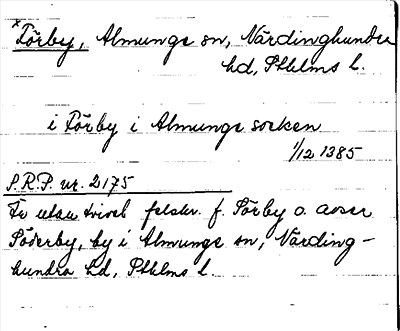 *Förby, Almunge sn, Närdinghundra
hd, Sthlms l.
i Förby i Almunge socken
1/12 1385
S.R.P. nr. 2175
Är utan tvivel felskr. f. Sörby o. avser
Söderby, by i Almunge sn, Närding-
hundra hd, Sthlms l.